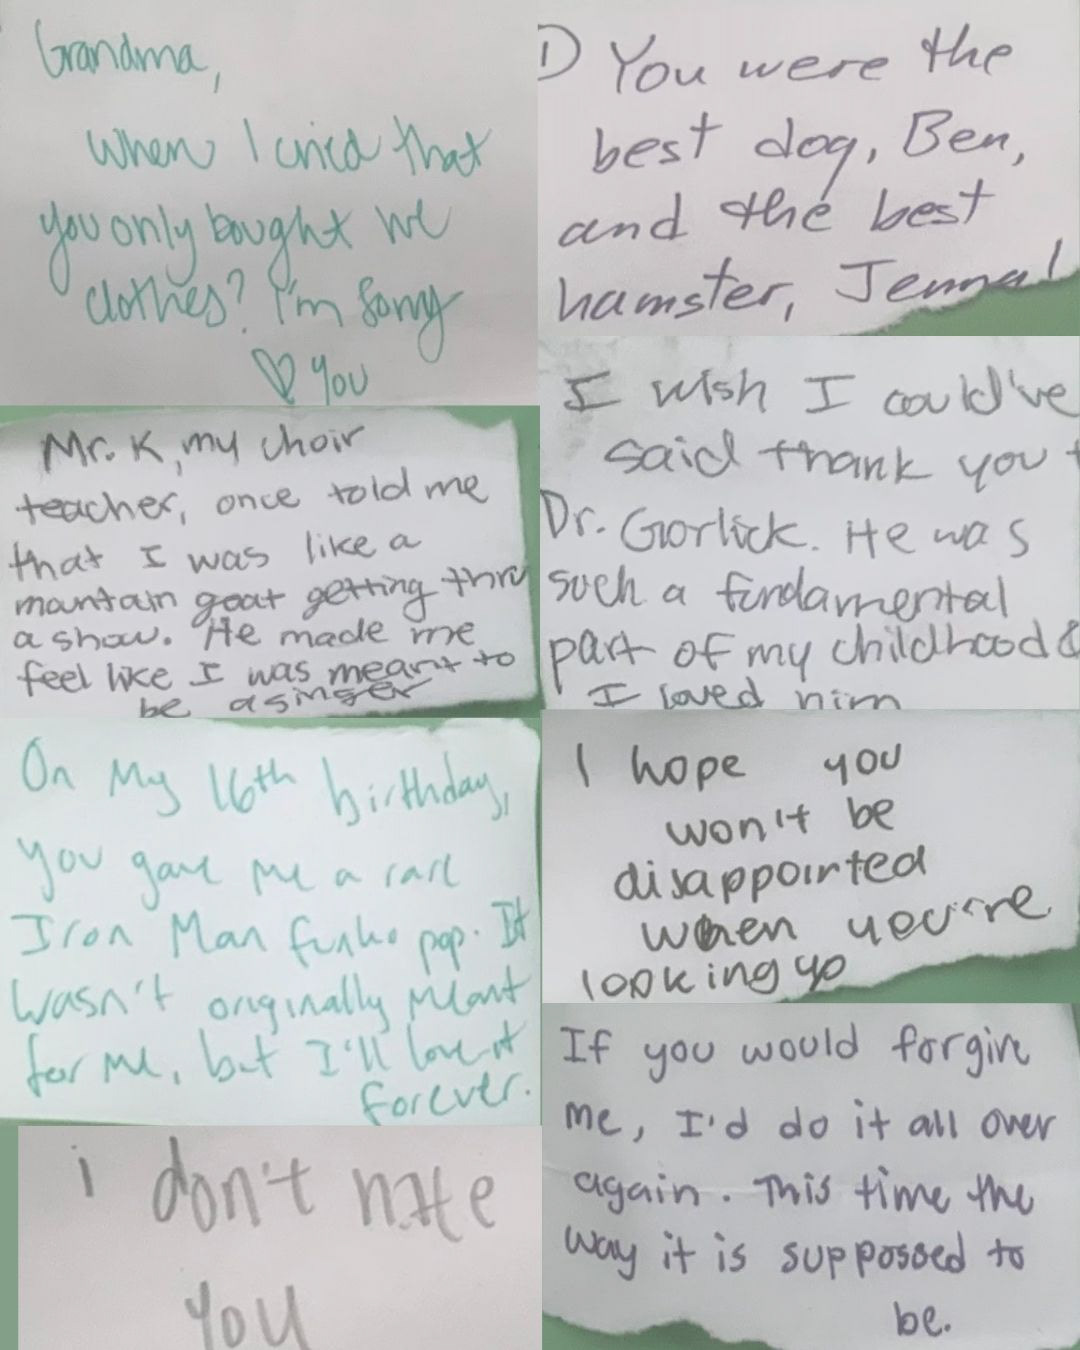 Grandma,
When I cried that
you only bought me
clothes? I'm sorry
♡ you
1) You were the
best dog, Ben,
and the best
hamster, Jenna!
Mr. K, my choir
teacher, once told me
that I was like a
mantain goat getting thru
a show. He made me
feel like I was meant to
be a singer
I wish I could've
said thank you t
Dr. Gorlick. He was
such a fundamental
part of my childhood &
I loved him
On My 16th birthday,
you gave me a rare
Iron Man funko pop. It
wasn't originally meant
for me, but I'll love it
forever.
I hope you
won't be
disappointed
when you're
looking up
i don't hate
you
If you would forgive
me, I'd do it all over
again. This time the
way it is suppossed to
be.